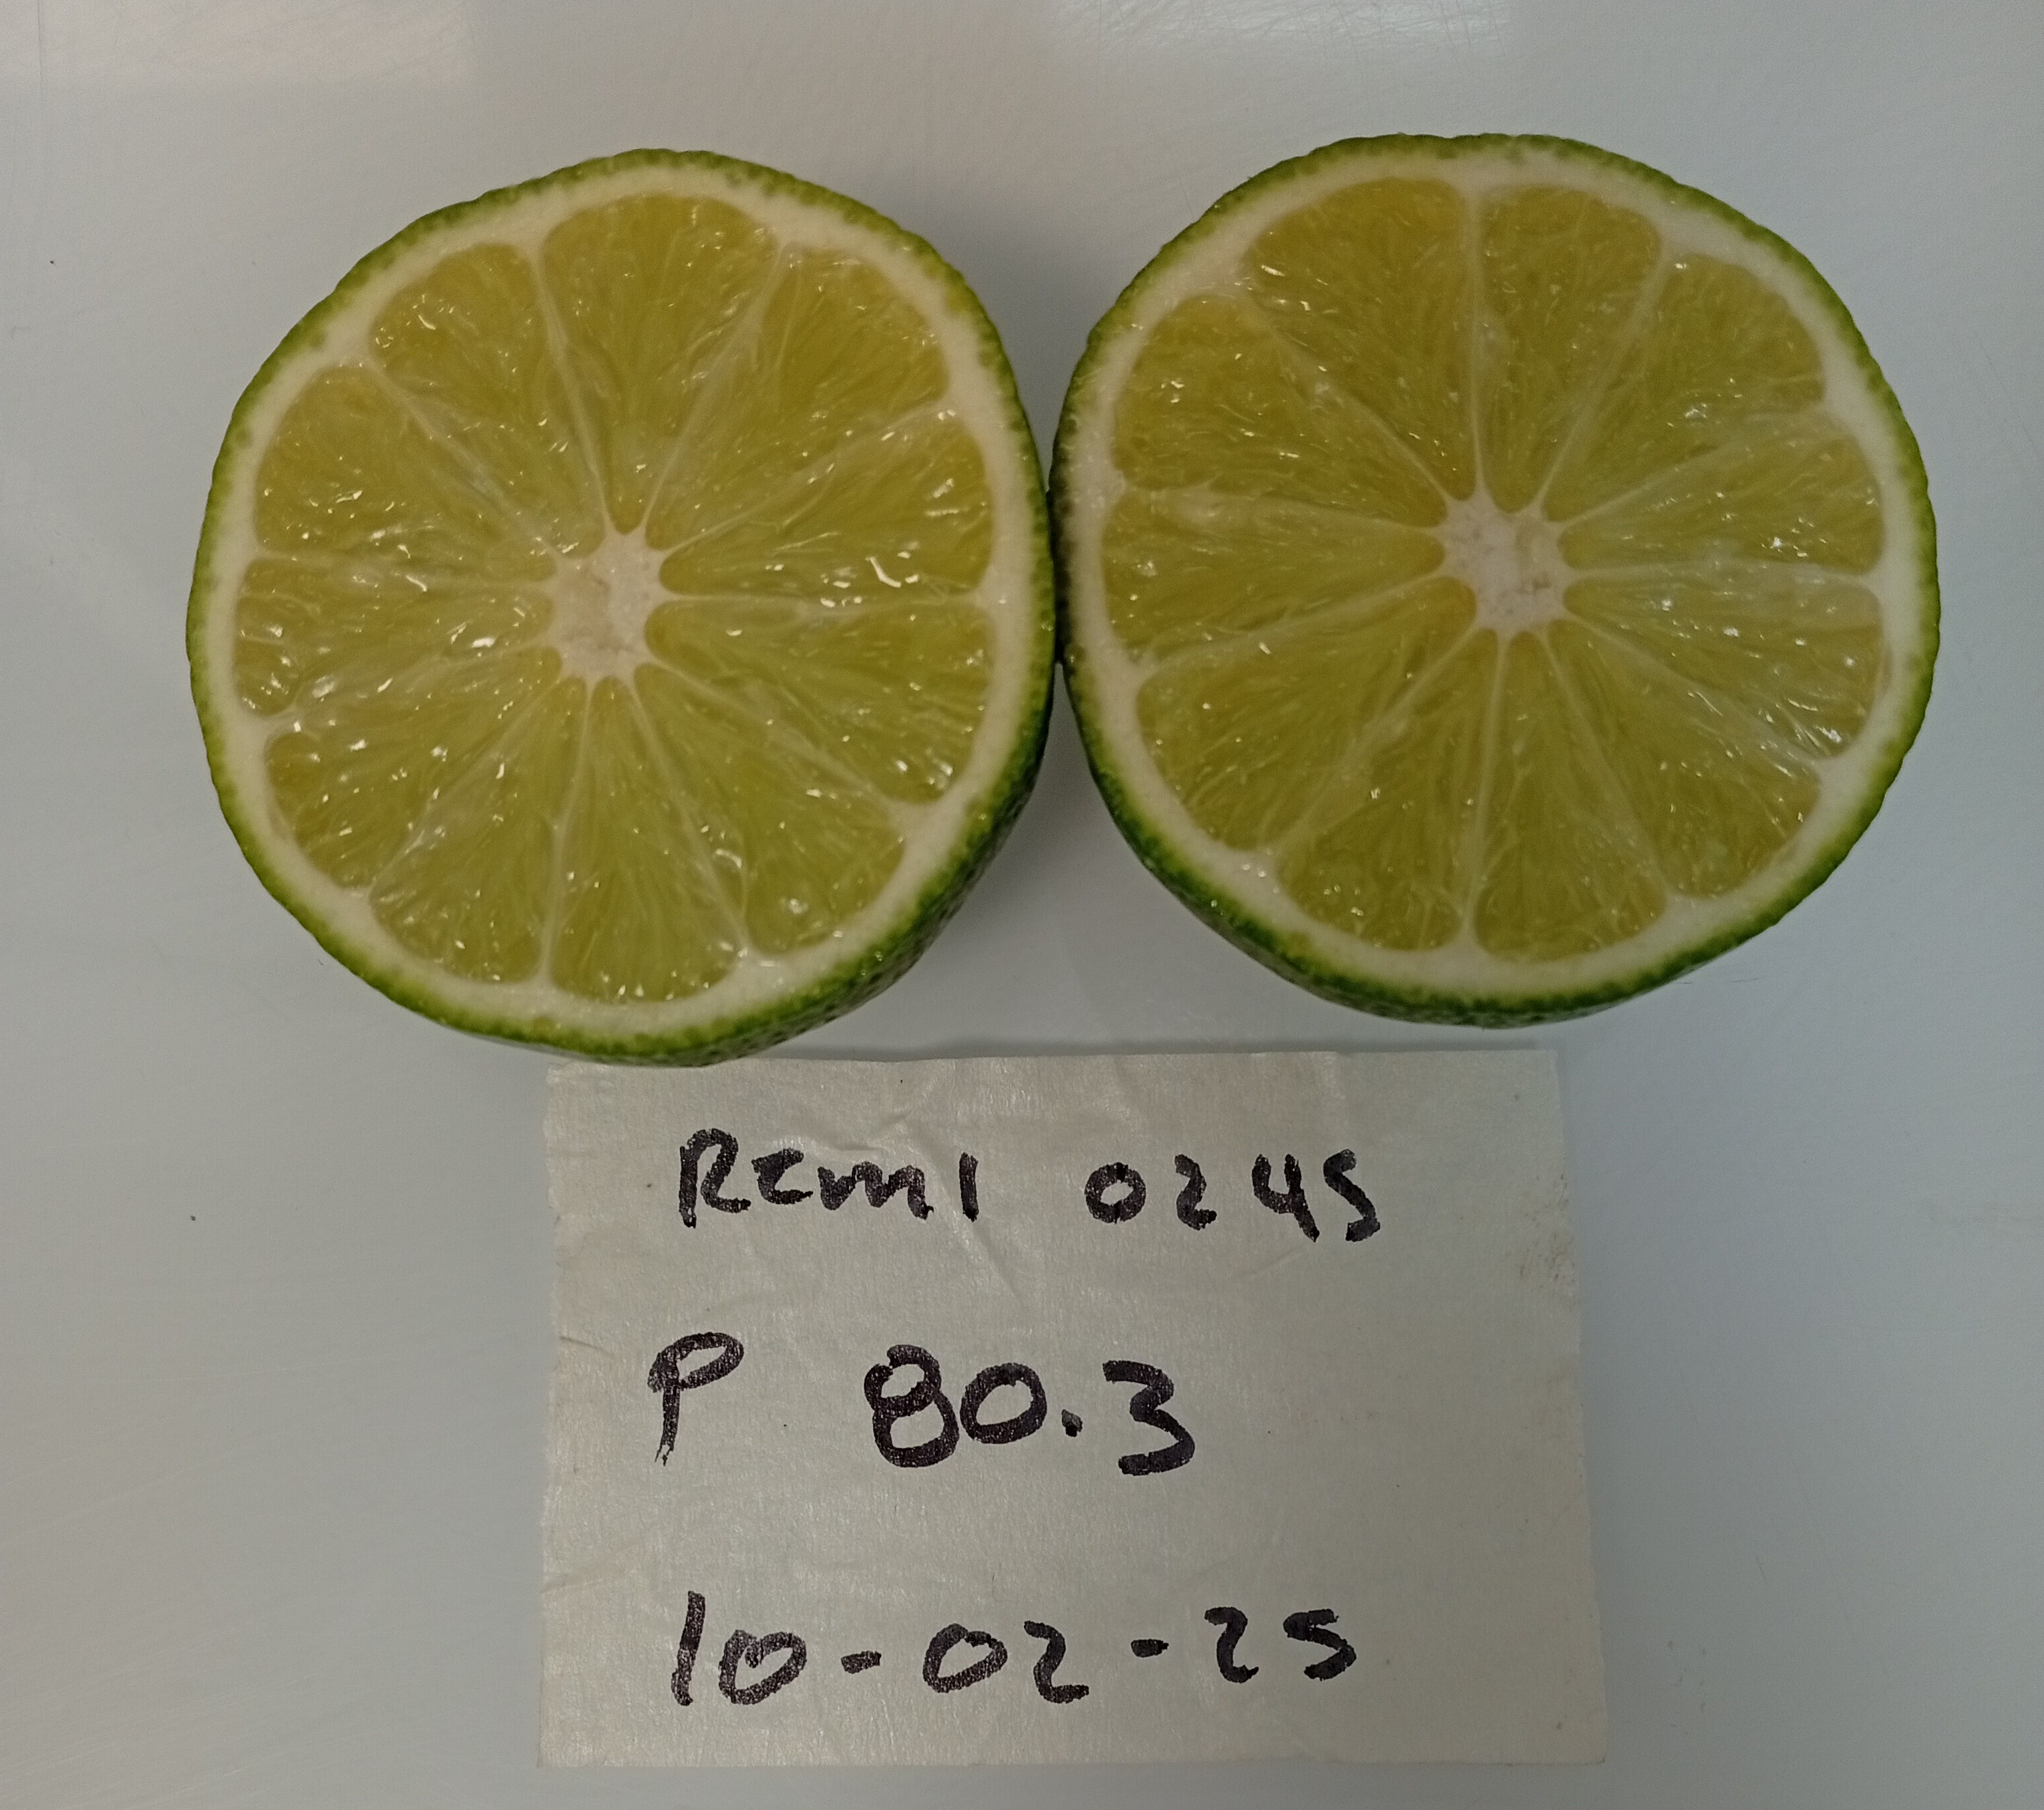 RCM1 0245
P 80.3
10-02-25